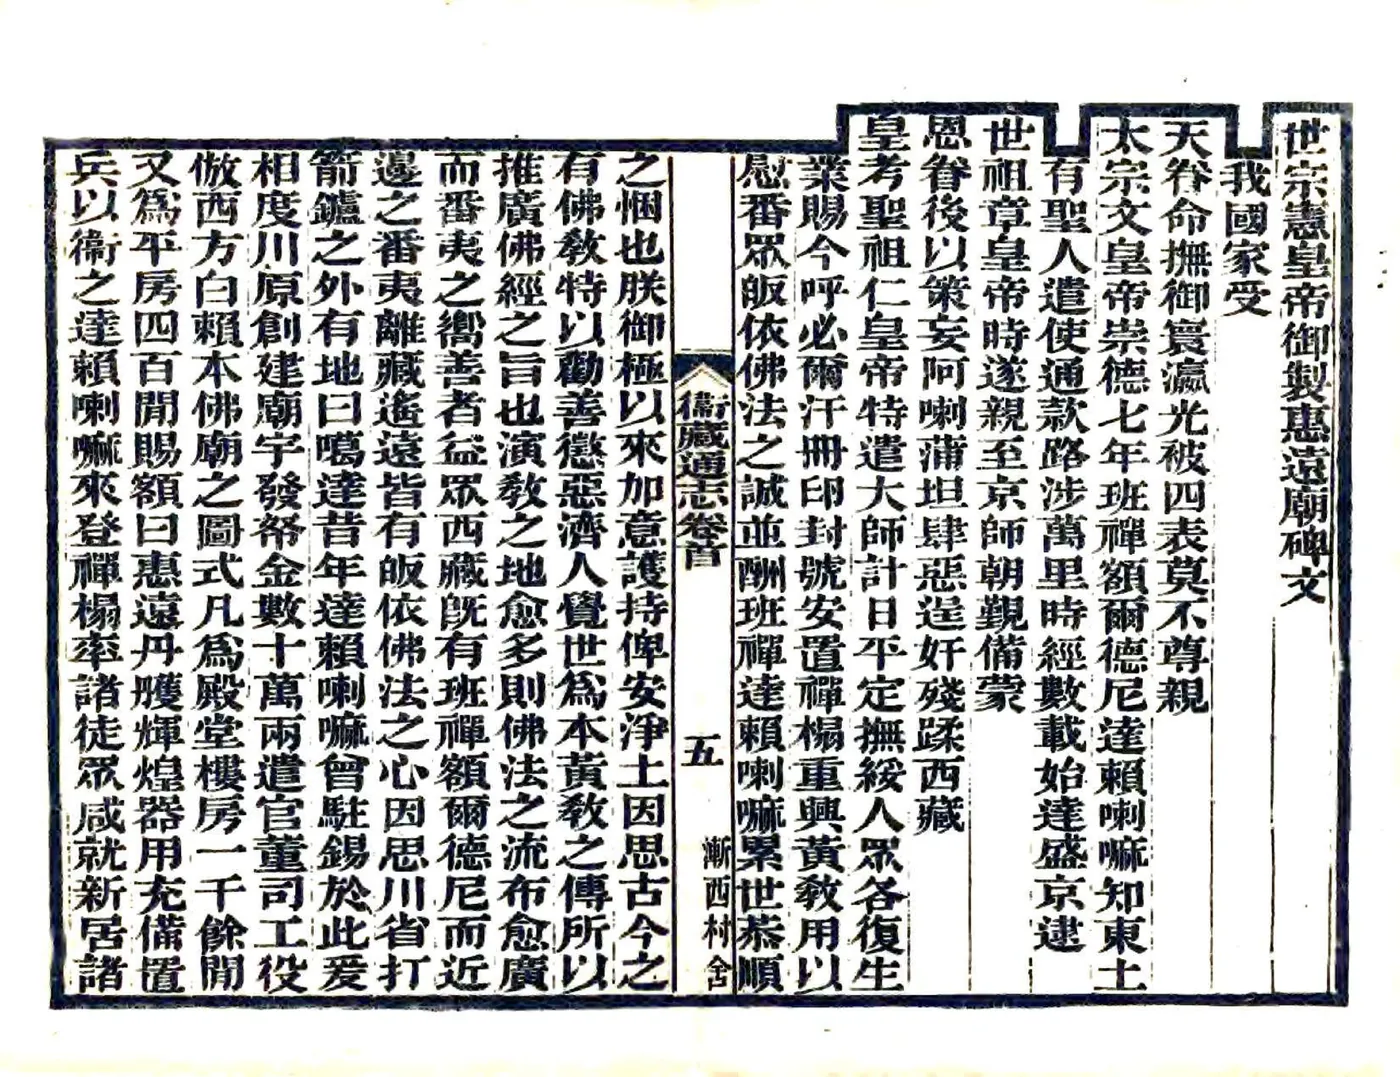 世宗憲皇帝御製惠遠廟碑文
我國家受
天眷命撫御寰瀛光被四表莫不尊親
太宗文皇帝崇德七年班禪額爾德尼達賴喇嘛知東土
有聖人遣使通款路涉萬里時經數載始達盛京逮
世祖章皇帝時遂親至京師朝覲備蒙
恩眷後以策妄阿喇蒲坦肆惡逞奸殘蹂西藏
皇考聖祖仁皇帝特遣大師計日平定撫綏人眾各復生
業賜今呼必爾汗冊印封號安置禪榻重興黃教用以
慰番眾皈依佛法之誠並酬班禪達賴喇嘛累世恭順
衞藏通志卷首
五
漸西村舍
之悃也朕御極以來加意護持俾安淨土因思古今之
有佛教特以勸善懲惡濟人覺世為本黃教之傳所以
推廣佛經之旨也演教之地愈多則佛法之流布愈廣
而番夷之嚮善者益眾西藏既有班禪額爾德尼而近
邊之番夷離藏遙遠皆有皈依佛法之心因思川省打
箭鑪之外有地曰噶達昔年達賴喇嘛曾駐錫於此爰
相度川原創建廟宇發帑金數十萬兩遣官董司工役
倣西方白賴本佛廟之圖式凡為殿堂樓房一千餘間
又為平房四百間賜額曰惠遠丹雘輝煌器用充備置
兵以衞之達賴喇嘛來登禪榻率諸徒眾咸就新居諸